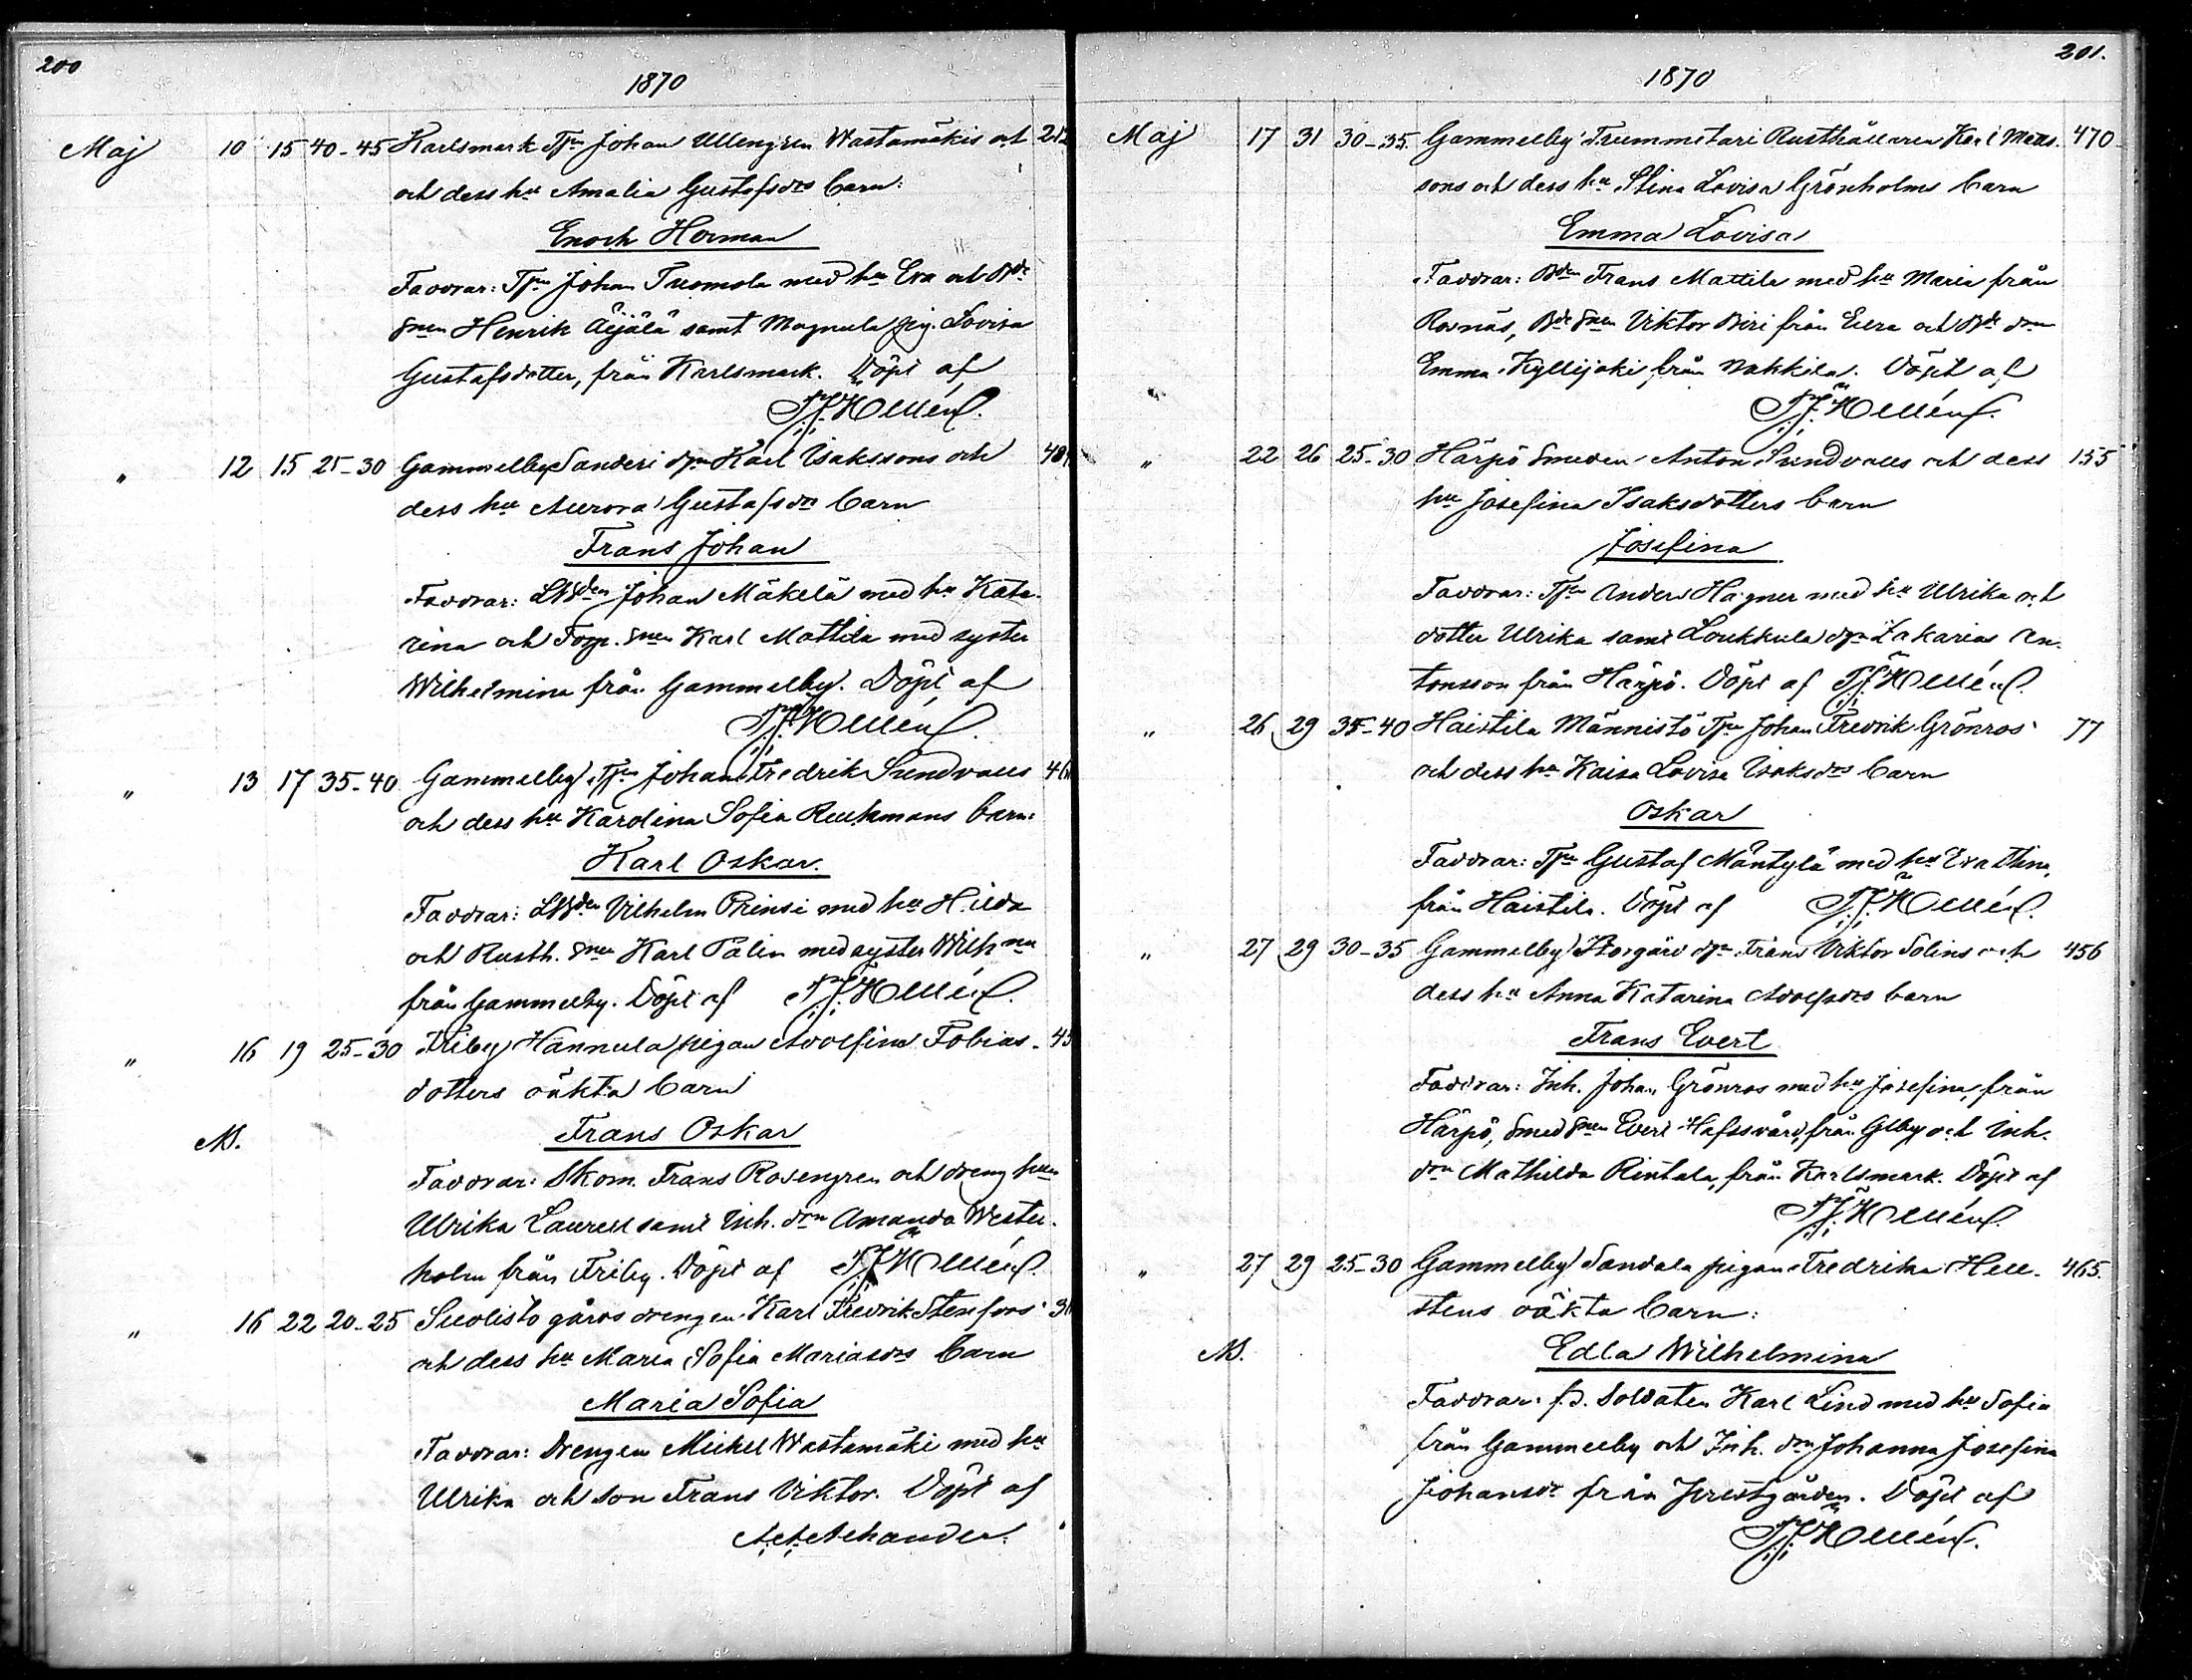 200
1870
Maj 10 15 40-45 Karlsmark Tjn Johan Ullengren Wastamäkis och
och dess hu Amalia Gustafsdrs barn:
Enoch Herman
Faddrar: Tjn Johan Tuomola med hu Eva och Bde
snen Henrik Äijälä samt Magnula pig. Lovisa
Gustafsdotter, från Karlsmark. Döpt af
T.J. Hellén.
" 12 15 25-30 Gammelby Sanderi Karl Isakssons och
dess hu Aurora Gustafsdrs barn
Frans Johan
Faddrar: LBden Johan Mäkelä med hu Kata-
rina och Torp. snen Karl Mattila med syster
Wilhelmina från Gammelby. Döpt af
T.J. Hellén.
" 13 17 35-40 Gammelby Tjn Johan Fredrik Sundvalls
och dess hu Karolina Sofia Ruuhmans barn:
Karl Oskar.
Faddrar: LBden Vilhelm Prinsi med hu Hilda
och Rusth. snen Karl Palin med syster Wilhna
från Gammelby. Döpt af T.J. Hellén.
" 16 19 25-30 Friby Hannula pigan Adolfina Tobias-
dotters oäkta barn
Frans Oskar
Faddrar: Skom. Frans Rosengren och dreng hun
Ulrika Laurell samt Inh. drn Amanda Wester-
holm från Friby. Döpt af T.J. Hellén.
" 16 22 20-25 Suolisto gårds drengen Karl Fredrik Stenfors
och dess hu Maria Sofia Mariasdrs barn
Maria Sofia
Faddrar: Drengen Mickel Wastamäki med hu
Ulrika och son Frans Viktor. Döpt af
201.
1870
Maj 17 31 30-35. Gammelby Trummetari Rusthållaren Karl Matts- 470
sons och dess hu Stina Lovisa Grönholms barn
Emma Lovisa
Faddrar: Bden Frans Mattila med hu Maria från
Rosnäs, Bde snen Viktor Biri från Eura och Bde drn
Emma Kyllijoki från Nakkila. Döpt af
T.J. Hellén.
" 22 26 25-30 Härpö Smeden Anton Sundvalls och dess 155
hu Josefina Isaksdotters barn
Josefina
Faddrar: Tjn Anders Hagner med hu Ulrika och
dotter Ulrika samt Loukkula Zakarias An-
tonsson från Härpö. Döpt af T.J. Hellén.
" 26 29 35-40 Haistila Männistö Tjn Johan Fredrik Grönros 77
och dess hu Kaisa Lovisa Isaksdrs barn
Oskar
Faddrar: Tjn Gustaf Mäntylä med hu Eva Stina,
från Haistila. Döpt af T.J. Hellén.
" 27 29 30-35 Gammelby Storgård Frans Viktor Solins och 456
dess hu Anna Katarina Adolfsdrs barn
Frans Evert
Faddrar: Inh. Johan Grönros med hu Josefina, från
Härpö, Smed snen Evert Hafssvärd, från Glby och Inh.
drn Mathilda Rintala, från Karlsmark. Döpt af
T.J. Hellén.
" 27 29 25-30 Gammelby Sandala pigan Fredrika Hell- 465.
stens oäkta barn:
Edla Wilhelmina
Faddrar: f.d. Soldaten Karl Lind med hu Sofia
från Gammelby och Inh. drn Johanna Josefina
Johansdr från Prestgården. Döpt af
T.J. Hellén.